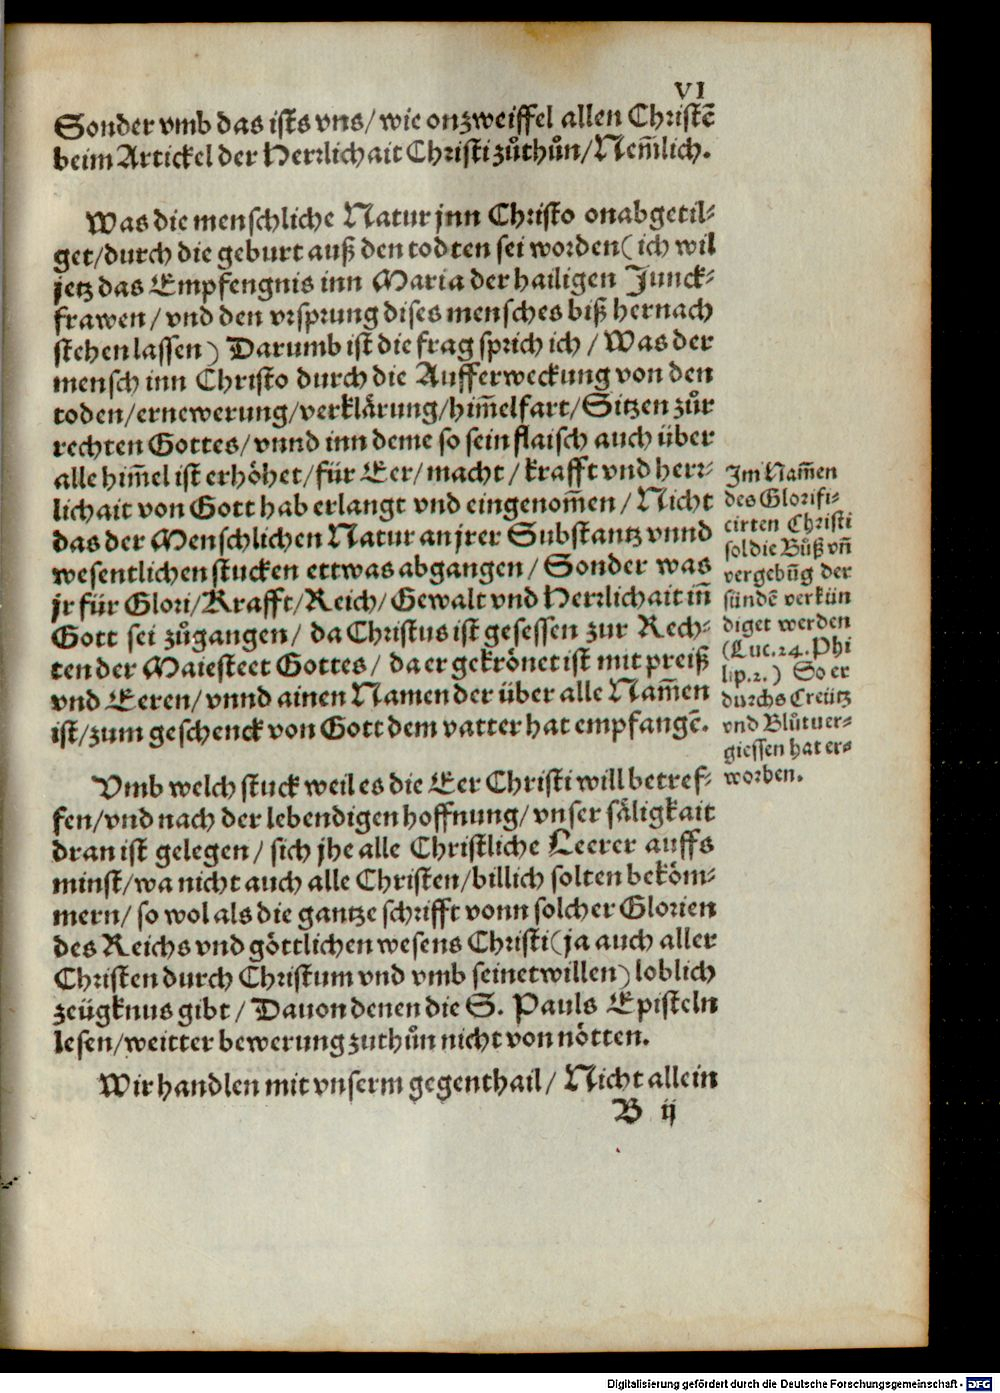 VI
Sonder vmb das ists vns/ wie onzweiffel allen Christē
beim Artickel der Herrlichait Christi zůthůn/ Nem̄lich.
Was die menschliche Natur jnn Christo onabgetil-
get/durch die geburt auß den todten sei worden (ich wil
jetz das Empfengnis inn Maria der hailigen Junck-
frawen/ vnd den vrsprung dises mensches biß hernach
stehen lassen) Darumb ist die frag sprich ich/ Was der
mensch inn Christo durch die Aufferweckung von den
toden/ernewerung/verklärung/him̄elfart/Sitzen zůr
rechten Gottes/ vnnd inn deme so sein flaisch auch über
alle him̄el ist erhöhet/für Eer/ macht/ krafft vnd herr-
lichait von Gott hab erlangt vnd eingenom̄en/ Nicht
das der Menschlichen Natur an jrer Substantz vnnd
wesentlichen stucken ettwas abgangen/ Sonder was
jr für Glori/Krafft/Reich/ Gewalt vnd Herrlichait in̄
Gott sei zůgangen/ da Christus ist gesessen zur Rech-
ten der Maiesteet Gottes/ da er gekrönet ist mit preiß
vnd Eeren/ vnnd ainen Namen der über alle Nam̄en
ist/zum geschenck von Gott dem vatter hat empfangē.
Im Nam̄en
des Glorifi-
cirten Christi
sol die Bůß vn̄
vergebūg der
sündē verkün
diget werden
(Luc. 24. Phi
lip. 2.) So er
durchs Creütz
vnd Blůtuer-
giessen hat er-
worben.
Vmb welch stuck weil es die Eer Christi will betref-
fen/vnd nach der lebendigen hoffnung/ vnser säligkait
dran ist gelegen/ sich jhe alle Christliche Leerer auffs
minst/wa nicht auch alle Christen/billich solten beköm-
mern/ so wol als die gantze schrifft vonn solcher Glorien
des Reichs vnd göttlichen wesens Christi (ja auch aller
Christen durch Christum vnd vmb seinet willen) loblich
zeügknus gibt/ Dauon denen die S. Pauls Episteln
lesen/weitter bewerung zuthůn nicht von nötten.
Wir handlen mit vnserm gegenthail/ Nicht allein
B ij
Digitalisierung gefördert durch die Deutsche Forschungsgemeinschaft - DFG